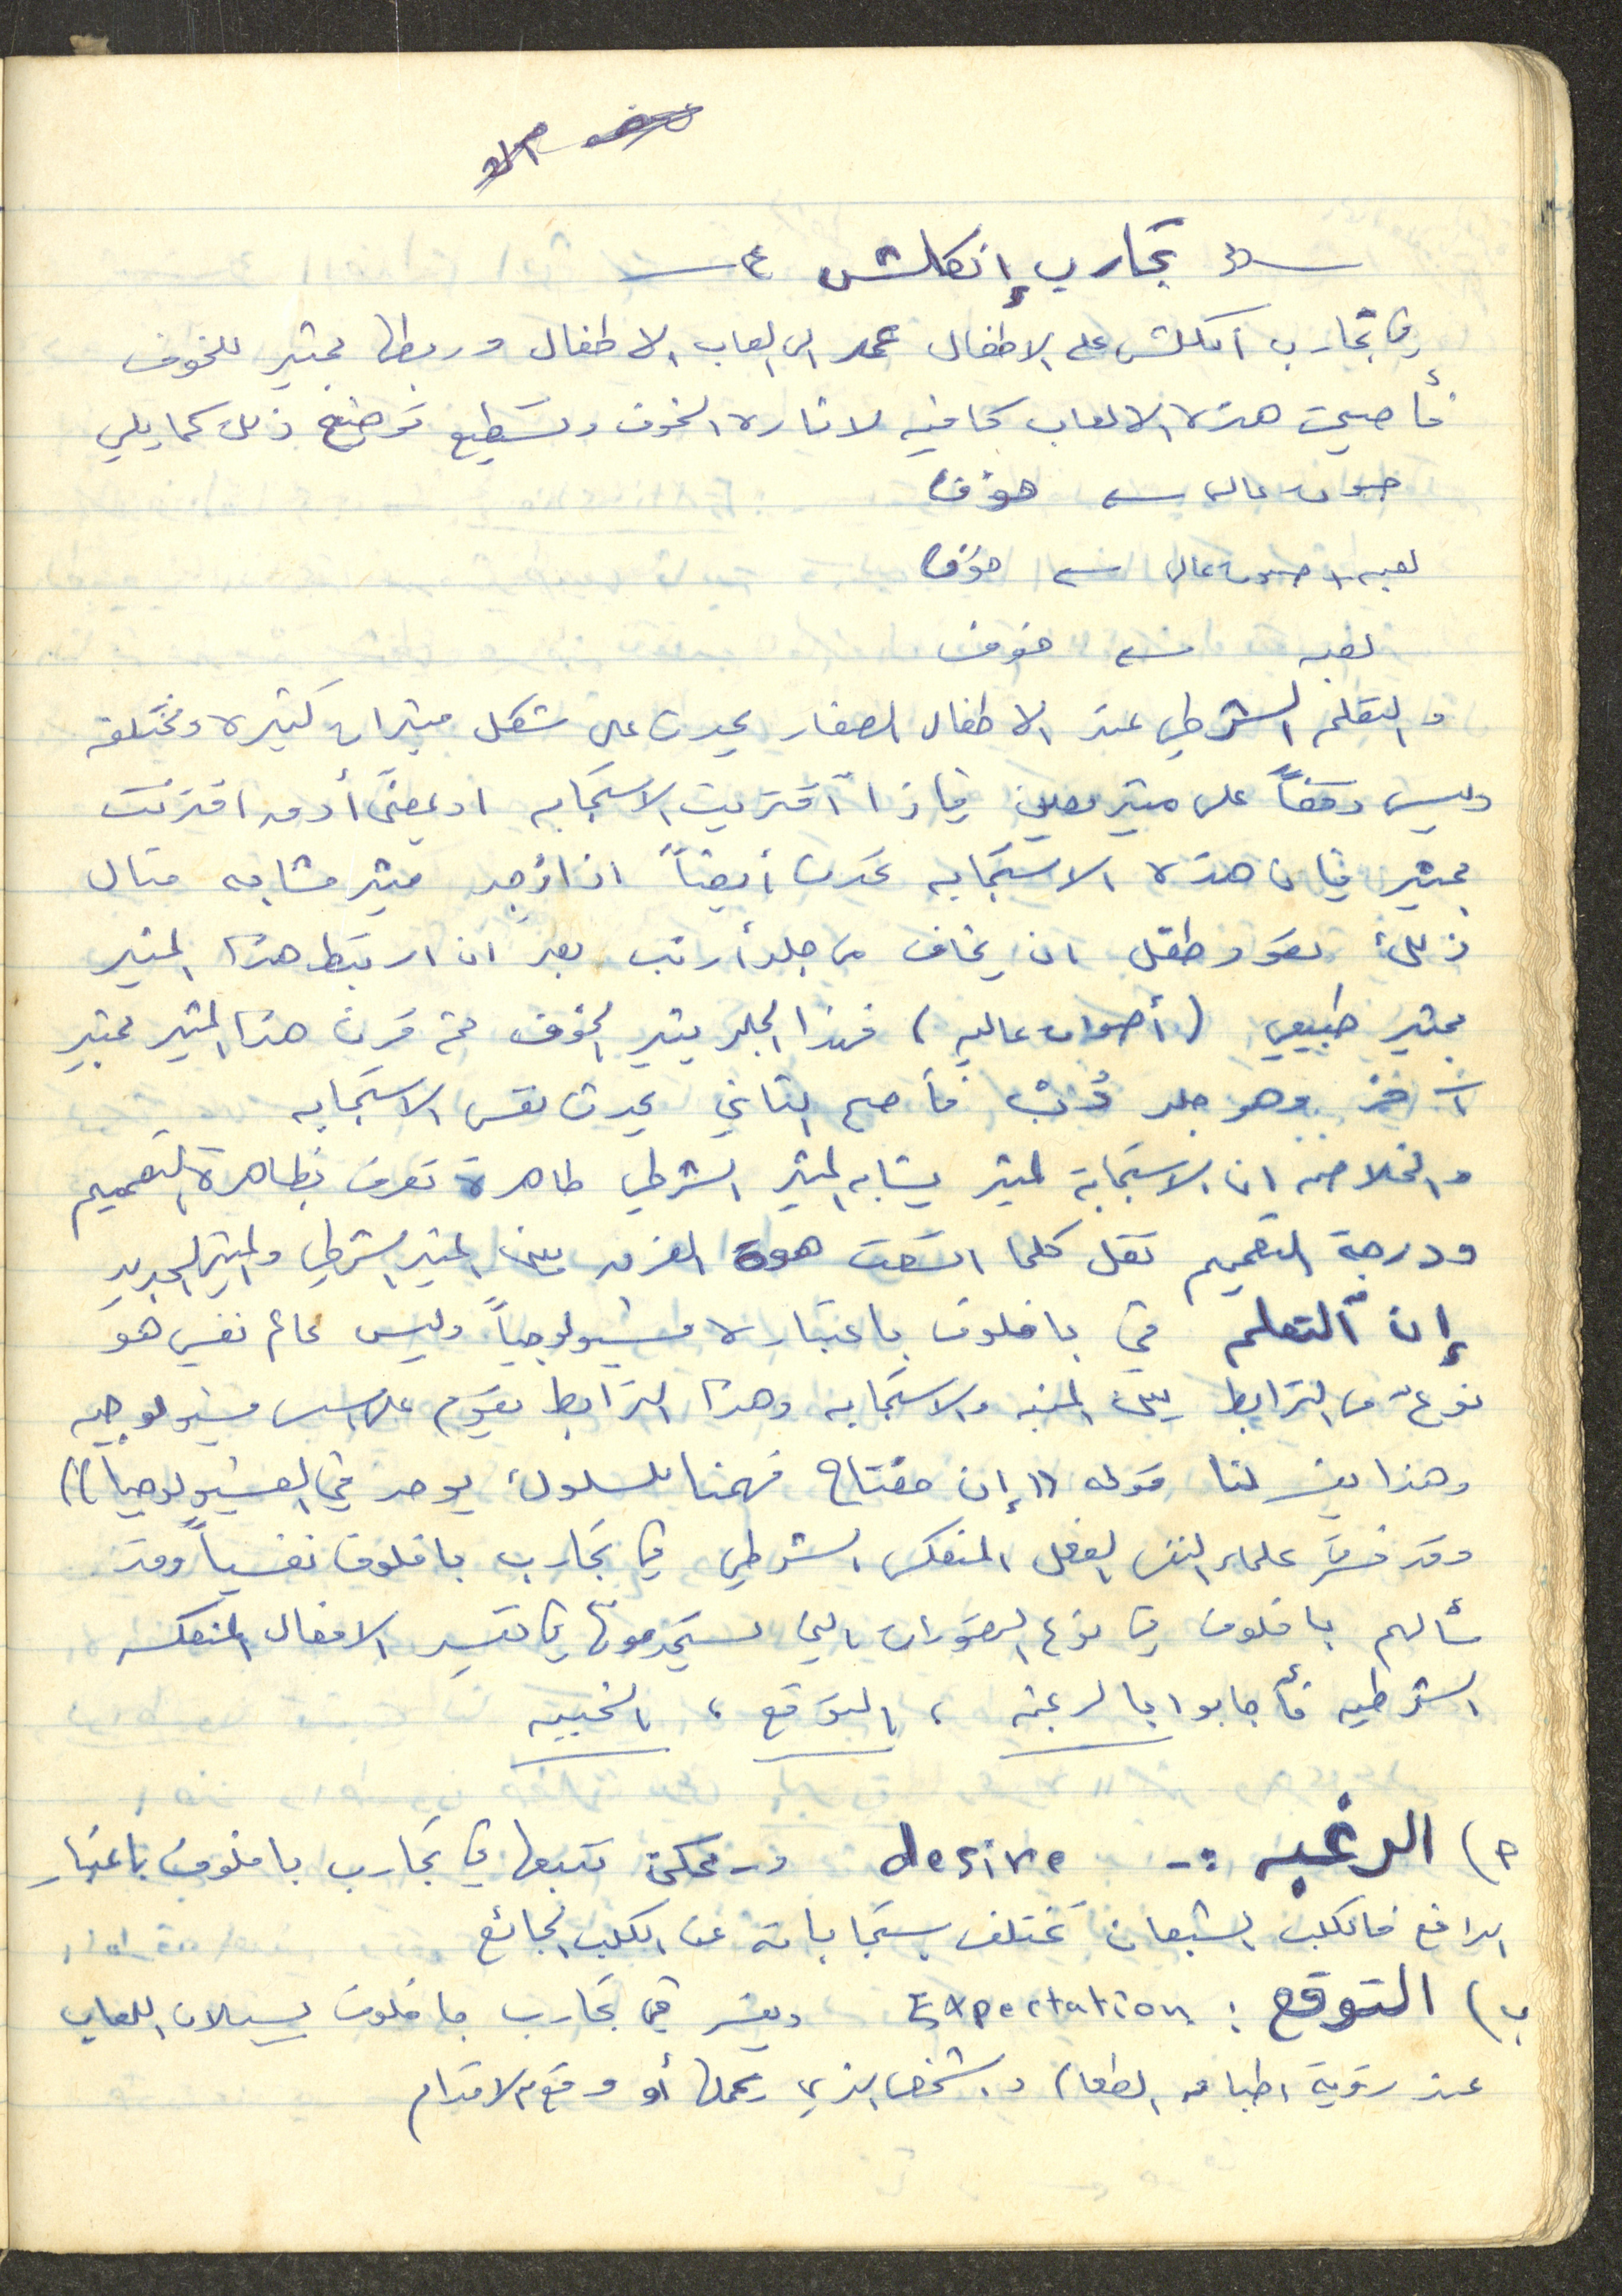 تجارب إنكلش
في تجارب انكلش على الاطفال عمد الى العاب الاطفال وربطها بمثير للخوف
فأصبحت هذه الالعاب كافيه لاثاره الخوف ونستطيع توضيح ذلك كما يلي
صوت عالى ← خوف
لعبه + صوت عالى ← خوف
لعبه ← خوف
والتعلم الشرطي عند الاطفال الصغار يحدث على شكل مثيرات كثيره ومختلفه
وليس وقفاً على مثير معين فاذا اقتربت الاستجابه او بمعنى أدق اقترنت
بمثير فان هذه الاستجابه تحدث أيضاً اذا وجد مثير مشابه مثال
ذلك تعود طفل ان يخاف من جلد أرنب بعد ان ارتبط هذا المثير
بمثير طبيعي (أصوات عاليه) فهذا الجلد يثير الخوف ثم قرن هذا المثير بمثير
آخر وهو جلد دُب فأصبح الثاني يحدث نفس الاستجابه
والخلاصه ان الاستجابة لمثير يشابه المثير الشرطي ظاهرة تعرف بظاهرة التعميم
ودرجة التعميم تقل كلما اتسعت هوة الفرق بين المثير الشرطي والمثير الجديد
إن التعلم في بافلوف باعتباره فسيولوجياً وليس عالم نفس هو
نوع من الترابط بين المنبه والاستجابه وهذا الترابط يقوم على اسس فسيولوجيه
وهذا يفسر لنا قوله ((إن مفتاح فهمنا للسلوك يوجد في الفسيولوجيا))
وقد فسر علماء النفس الفعل المنعكس الشرطي في تجارب بافلوف نفسياً وقد
سألهم بافلوف في نوع التصورات التي يستخدمونها في تفسير الافعال المنعكسه
الشرطيه فأجابوا بالرغبه ، التوقع ، الخيبه
٢) الرغبه :- desire ويمكن تتبعها في تجارب بافلوف باعتبار
الدافع فالكلب الشبعان تختلف إستجاباته عن الكلب الجائع
ب) التوقع : Expectation ويفسر في تجارب بافلوف بسيلان اللعاب
عند رؤية اطباق الطعام والشخص الذي يحملها أو وقع الاقدام